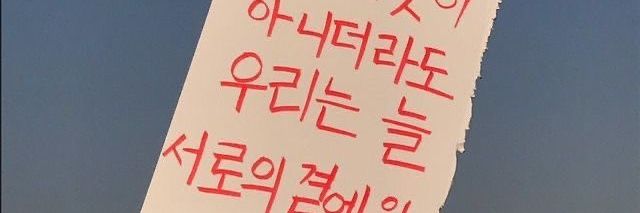 아니더라도
우리는 늘
서로의 곁에